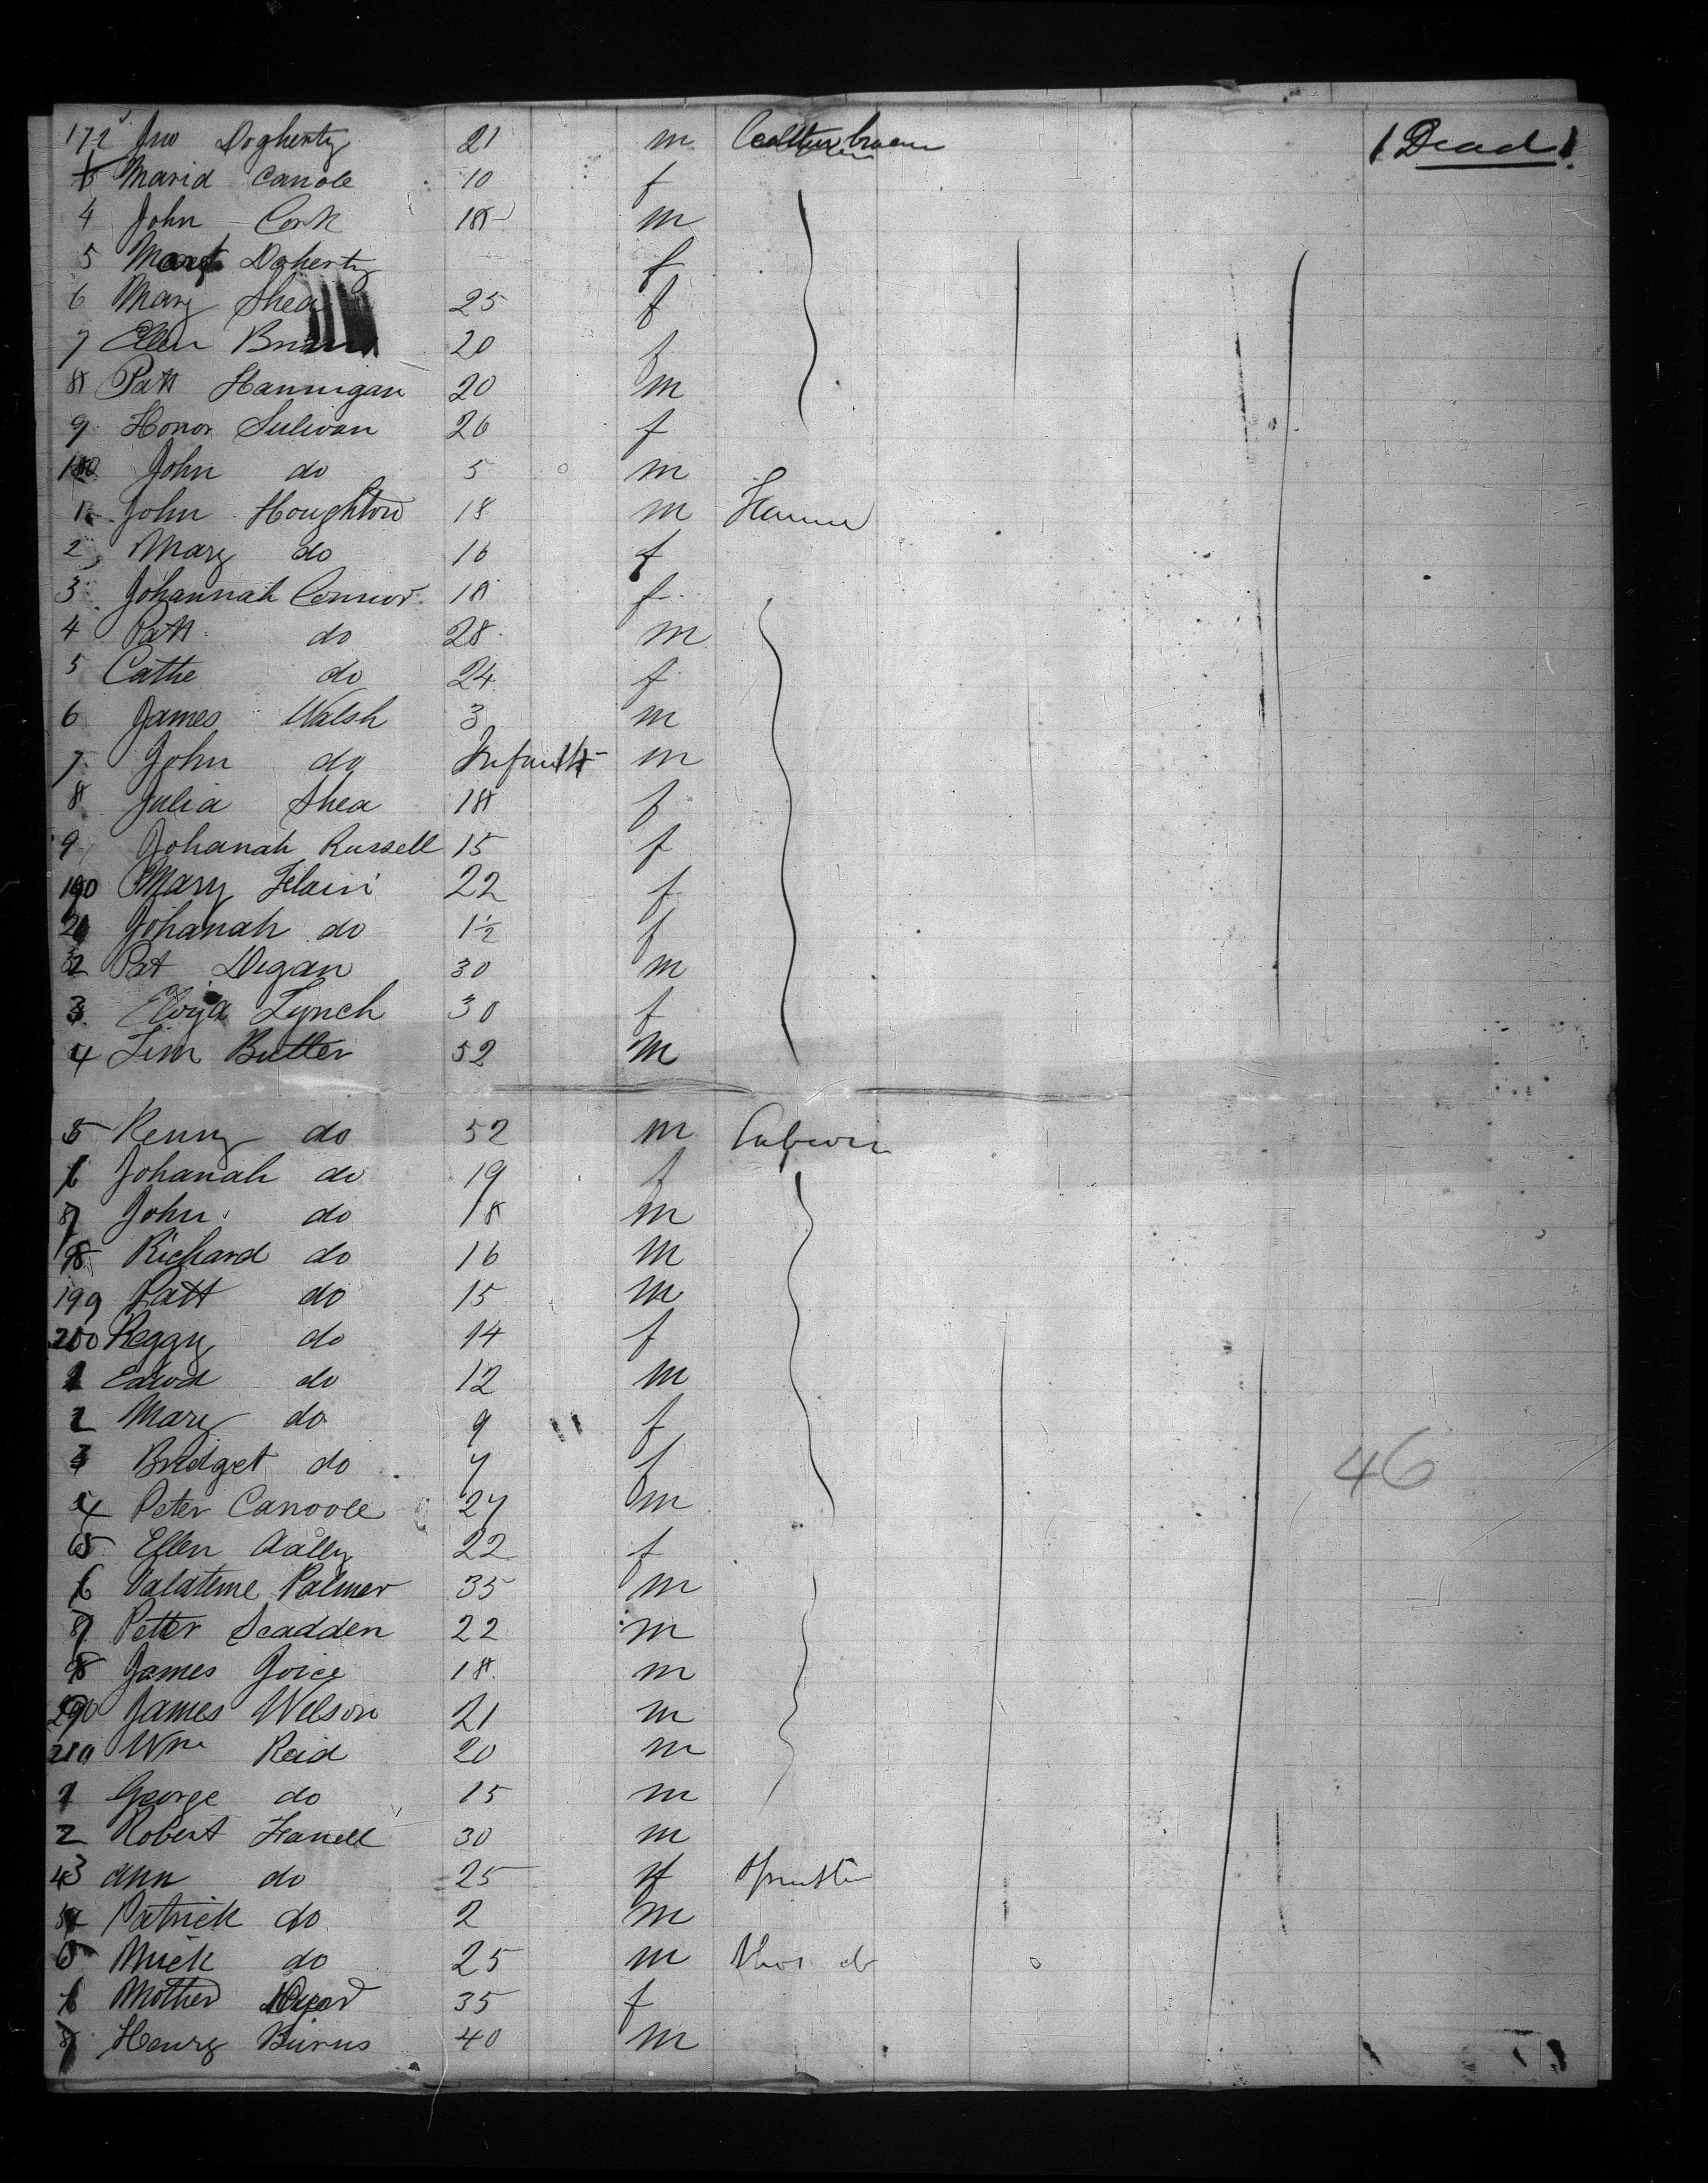 172 Jno Dogherty 21 m Dead
Maria Canole 10 f
4 John Cork 18 m
5 Margt Doherty f
6 Mary Shea 25 f
7 Ellen 20 f
8 Patt Hannigan 20 m
9 Honor Sulivan 26 f
180 John do 5 m
1 John Houghton 18 m
2 Mary do 16 f
3 Johannah Connor 18 f
4 Patt do 28 m
5 Cathe do 24 f
6 James Walsh 3 m
7 John do Infant m
8 Julia Shea 18 f
9 Johanah Russell 15 f
190 Mary 22 f
Johanah do 1½ f
2 Pat Degan 30 m
3 Lynch 30 f
4 Butler 52 m
5 do 52 m
6 Johanah do 19 f
7 John do 18 m
8 Richard do 16 m
199 Patt do 15 m
200 Peggy do 14 f
1 Edwd do 12 m
2 Mary do 9 f
3 Bridget do 7 f
4 Peter Canoole 27 m
46
5 Ellen 22 f
6 Valatine Palmer 35 m
7 Petter Scadden 22 m
8 James Joice 18 m
James Wilson 21 m
210 Wm Reid 20 m
1 George do 15 m
2 Robert 30 m
3 Ann do 25 f
4 Patrick do 2 m
5 Mick do 25 m
6 35 f
7 Henry Burns 40 m